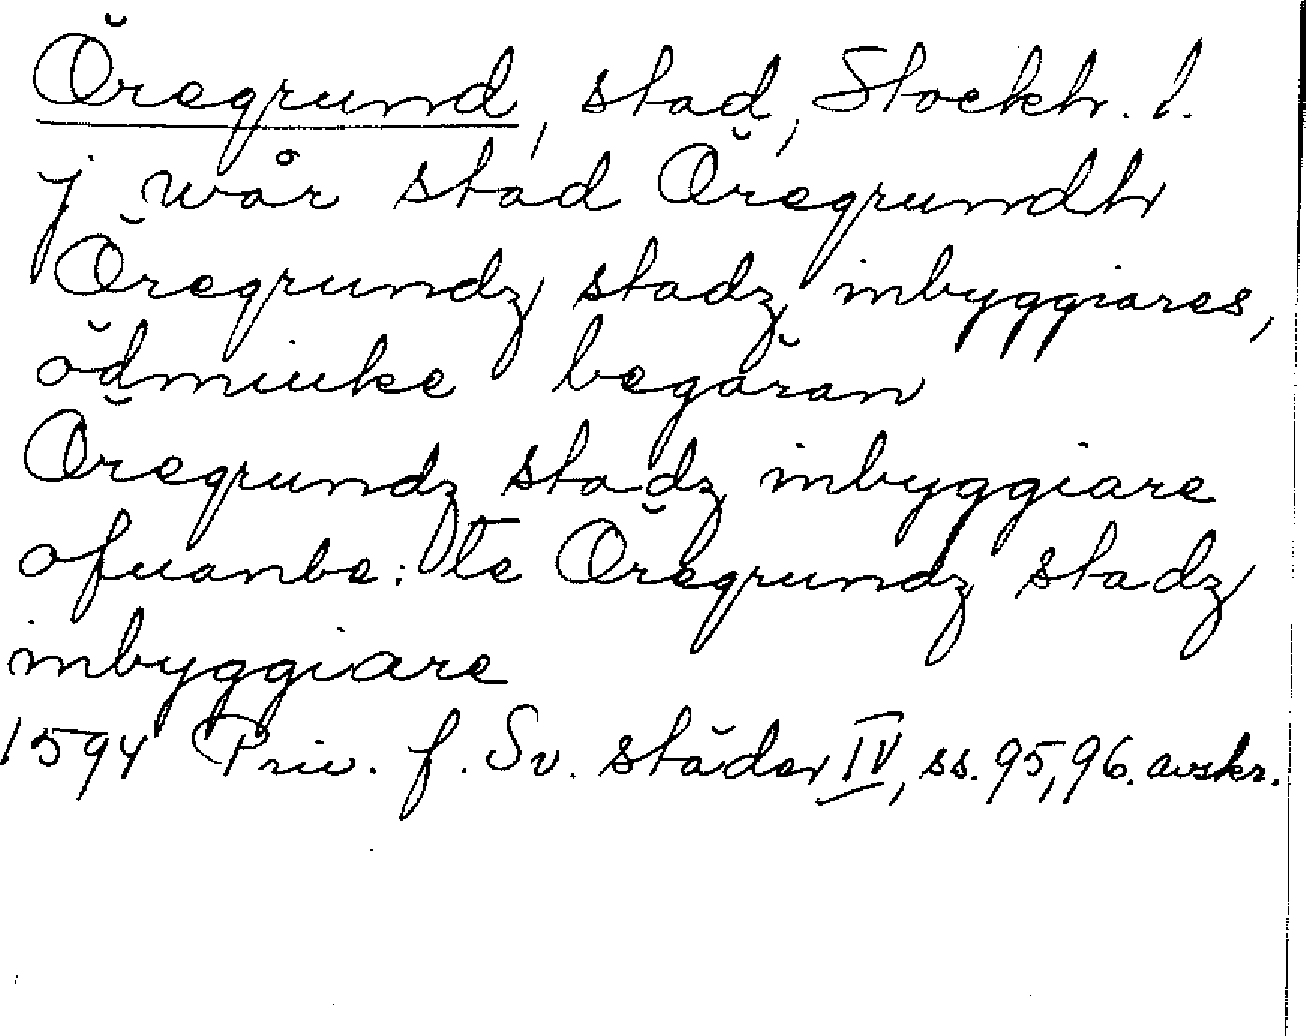 Öregrund, stad, Stockh. l.
j wår stad Öregrundh
Öregrundz stadz inbyggiares,
ödmiuke begäran
Öregrundz stadz inbyggiare
ofuanbe:te Öregrundz stadz
inbyggiare
1594 Priv. f. Sv. städer IV, ss. 95, 96. avskr.